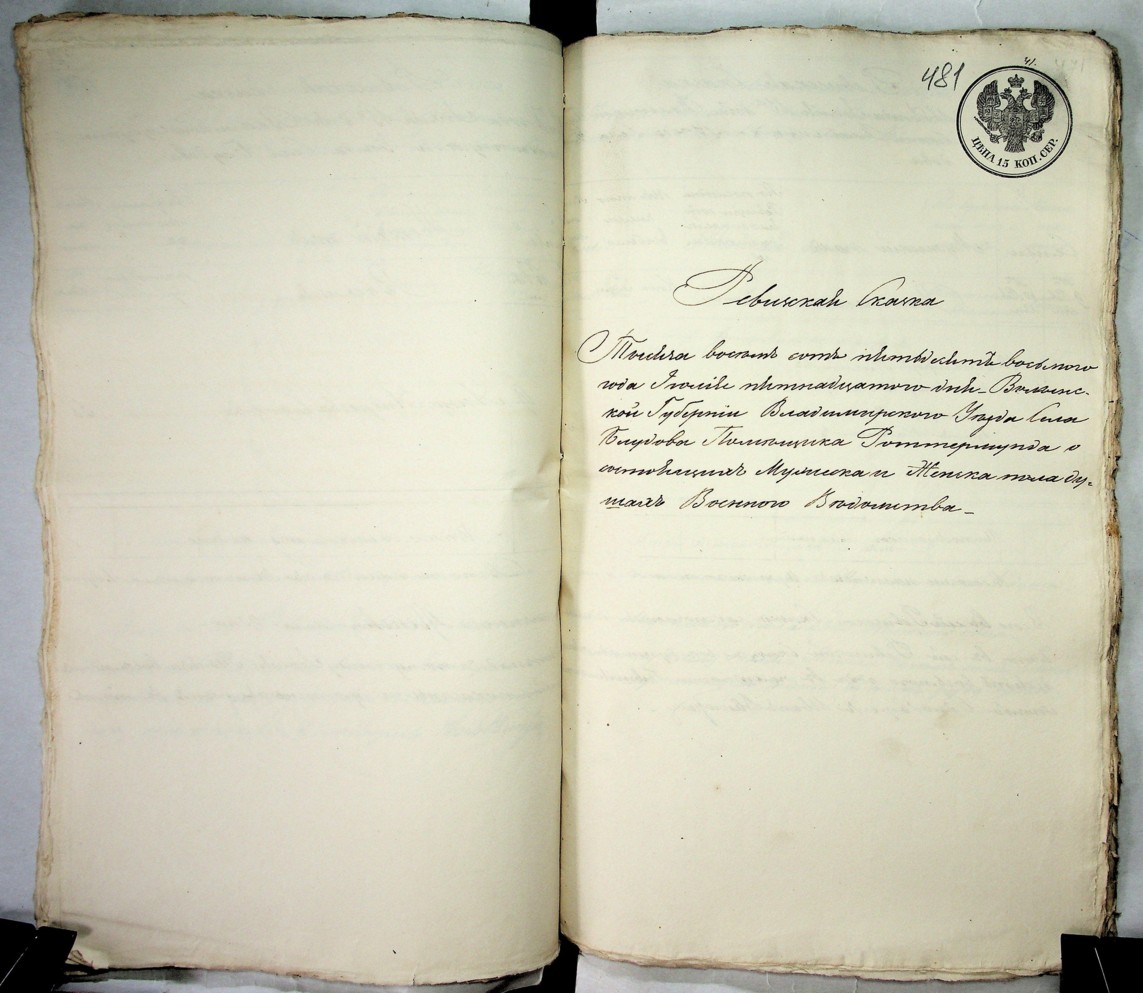 481
41.
ЦѢНА 15 КОП. СЕР.
Ревизская Сказка
Тысяча восемь сотъ пятьдесятъ восьмого
года Іюля пятнадцатого дня Волынс-
кой Губерніи Владимирского Уѣзда Села
Блудова Помѣщика Роттермунда о
состоящихъ Мужеска и Женска пола ду-
шахъ Военного Вѣдомства